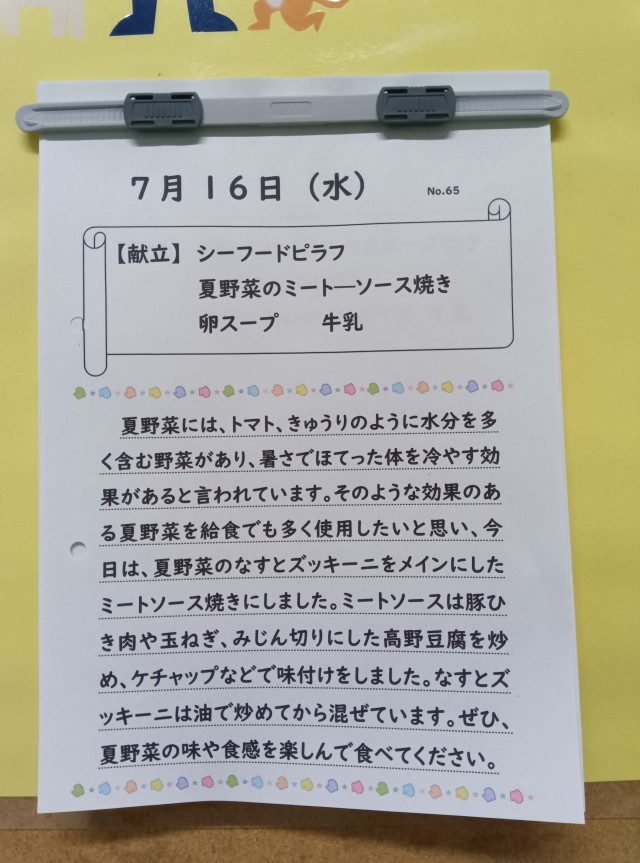 7月16日（水）
No.65
【献立】 シーフードピラフ
夏野菜のミート―ソース焼き
卵スープ　　牛乳
夏野菜には、トマト、きゅうりのように水分を多
く含む野菜があり、暑さでほてった体を冷やす効
果があると言われています。そのような効果のあ
る夏野菜を給食でも多く使用したいと思い、今
日は、夏野菜のなすとズッキーニをメインにした
ミートソース焼きにしました。ミートソースは豚ひ
き肉や玉ねぎ、みじん切りにした高野豆腐を炒
め、ケチャップなどで味付けをしました。なすとズ
ッキーニは油で炒めてから混ぜています。ぜひ、
夏野菜の味や食感を楽しんで食べてください。